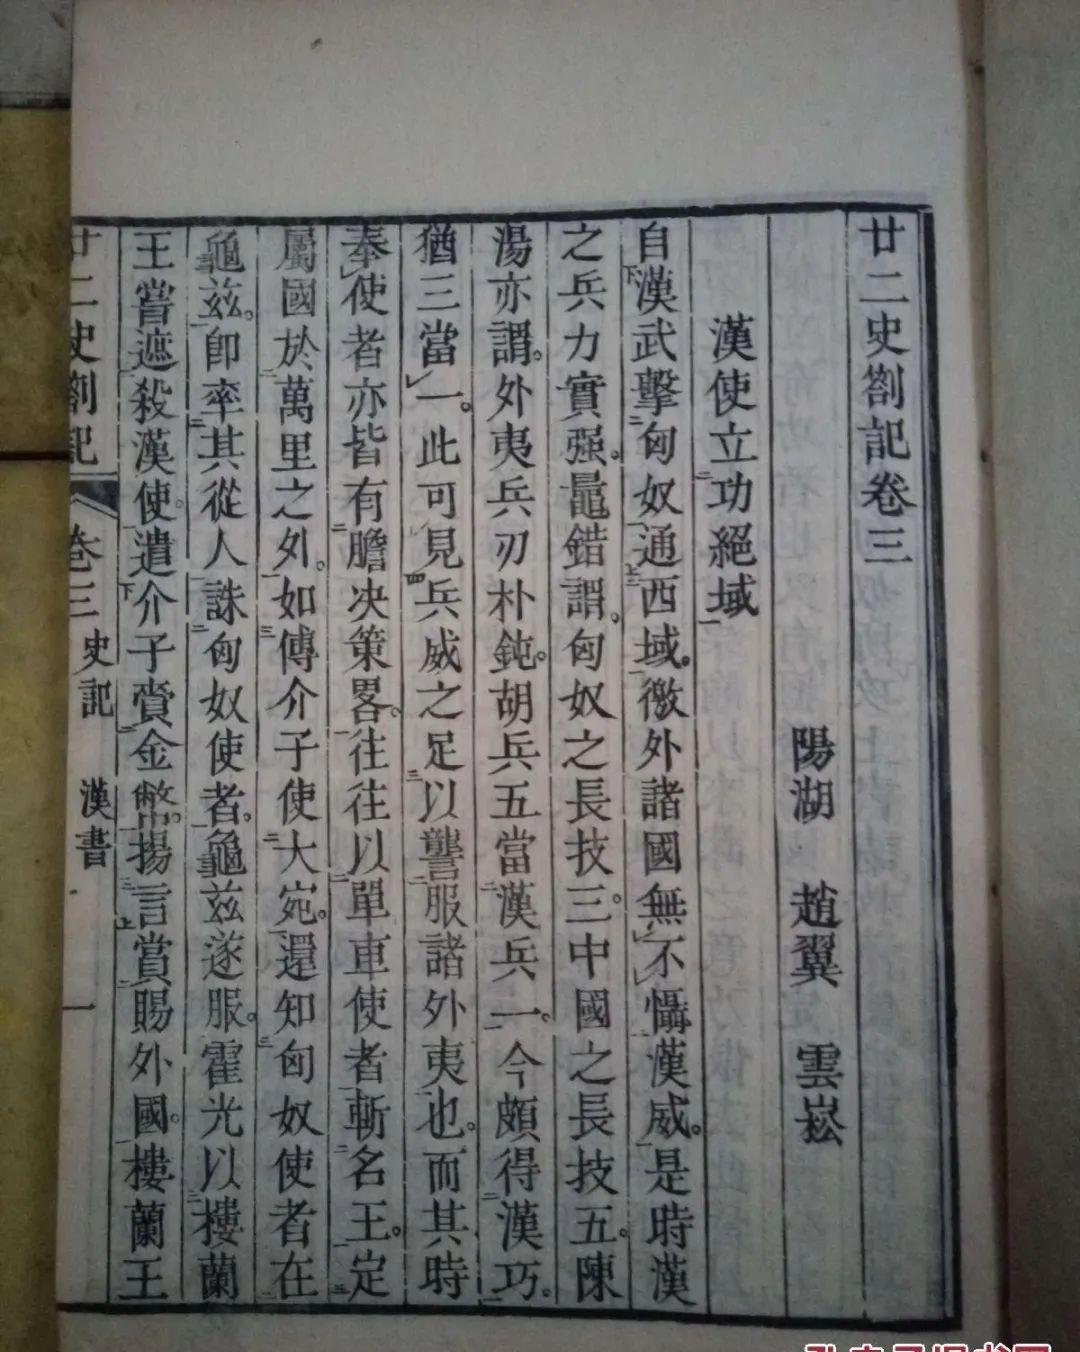 廿二史劄記卷三
陽湖 趙翼 雲崧
漢使立功絕域
自漢武擊匈奴通西域。徼外諸國無不懾漢威。是時漢
之兵力實强。鼂錯謂。匈奴之長技三。中國之長技五。陳
湯亦謂。外夷兵刃朴鈍。胡兵五當漢兵一。今頗得漢巧。
猶三當一。此可見兵威之足以讋服諸外夷也。而其時
奉使者亦皆有膽决策畧。往往以單車使者斬名王。定
屬國於萬里之外。如傅介子使大宛。還知匈奴使者在
龜兹。卽率其從人誅匈奴使者。龜兹遂服。霍光以樓蘭
王嘗遮殺漢使。遣介子賫金幣。揚言賞賜外國。樓蘭王
廿二史劄記 卷三 史記 漢書 一